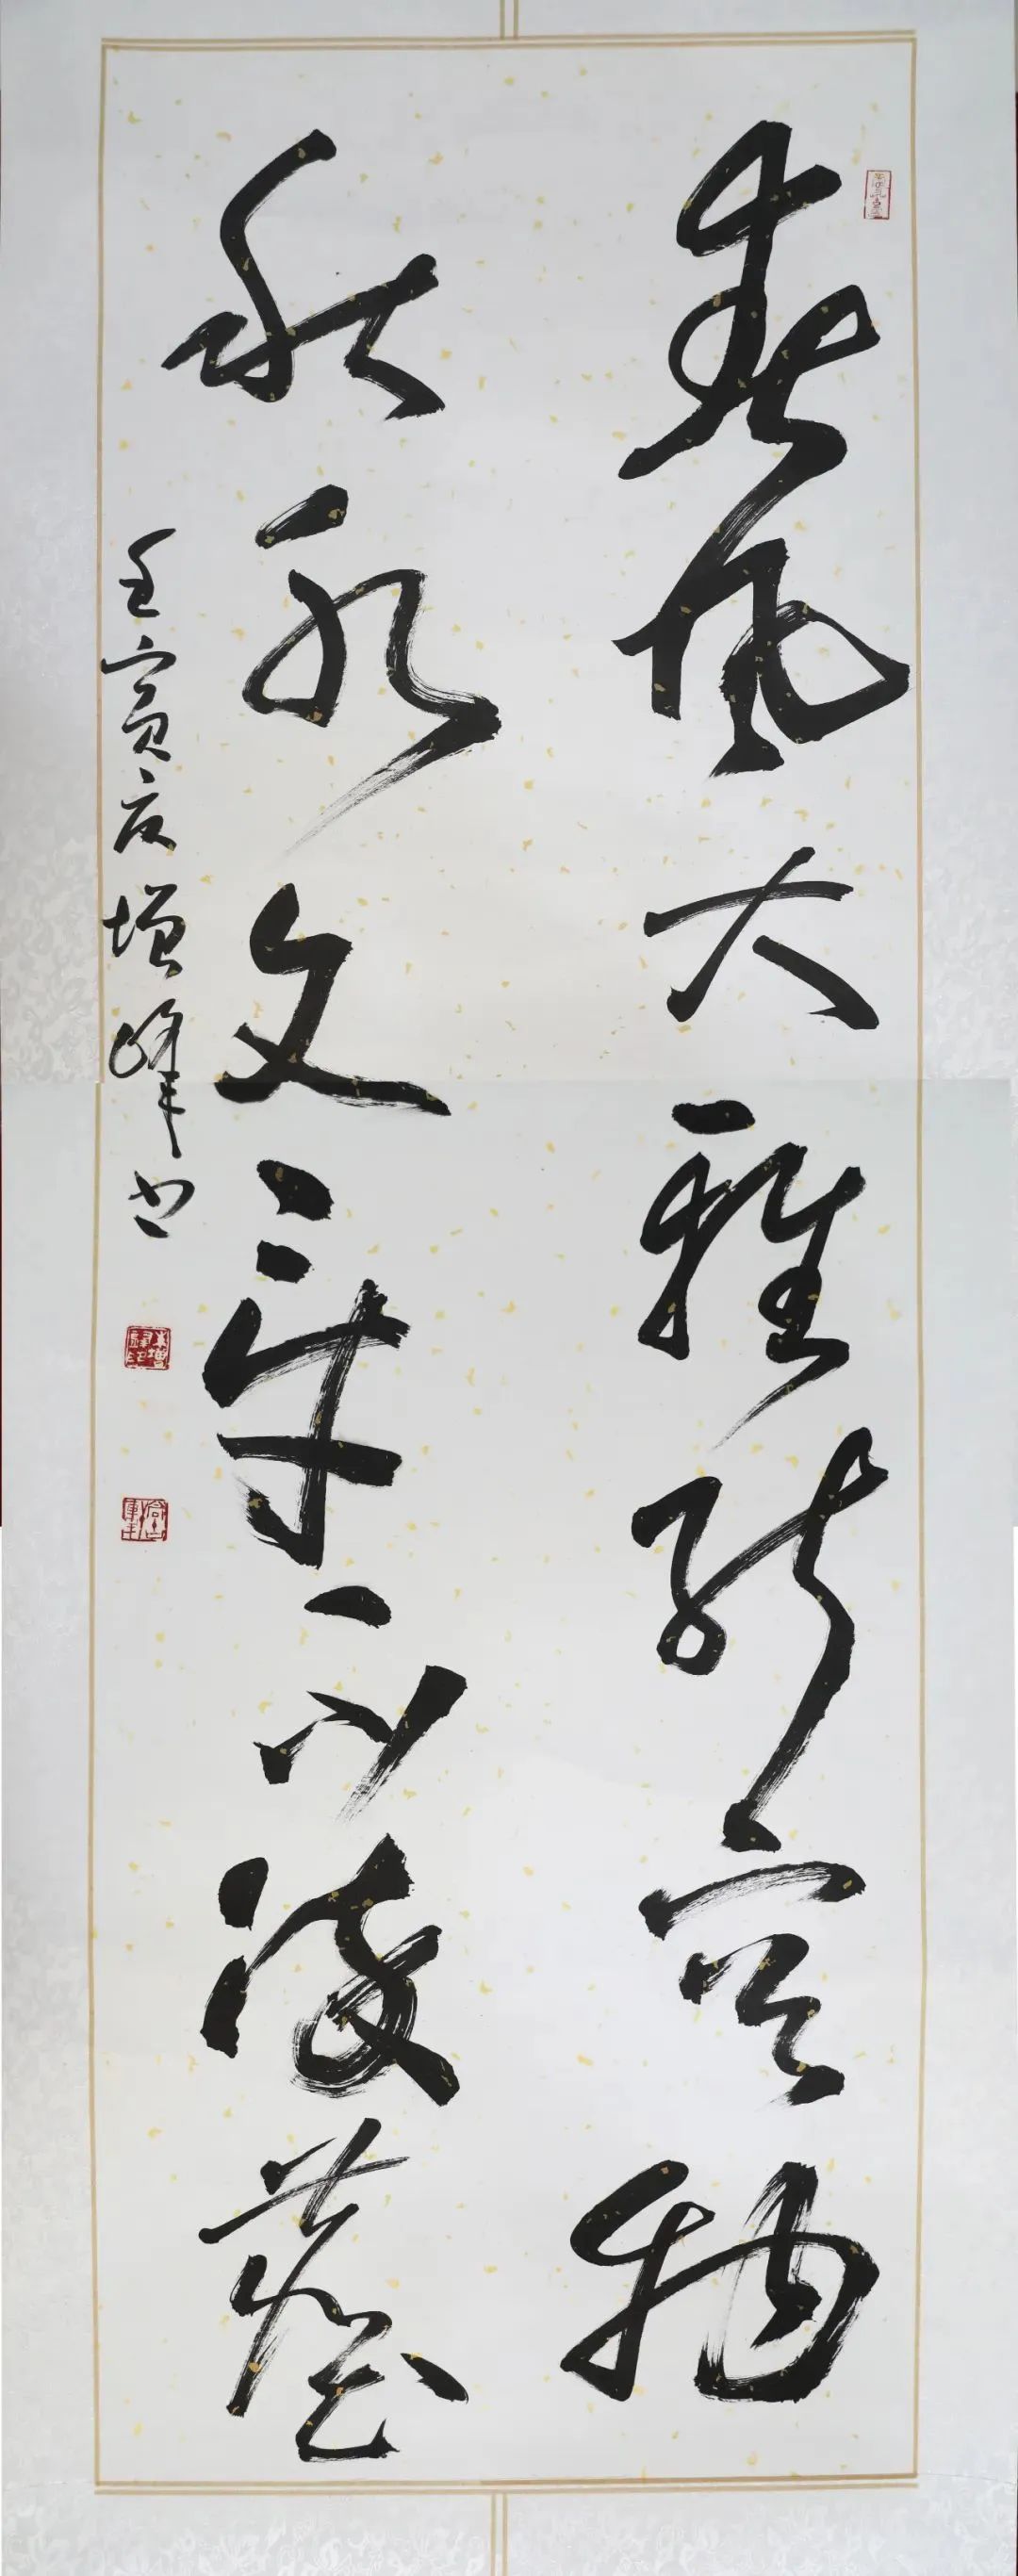 春风大雅能容物
秋水文章不染尘
壬寅夏增峰书